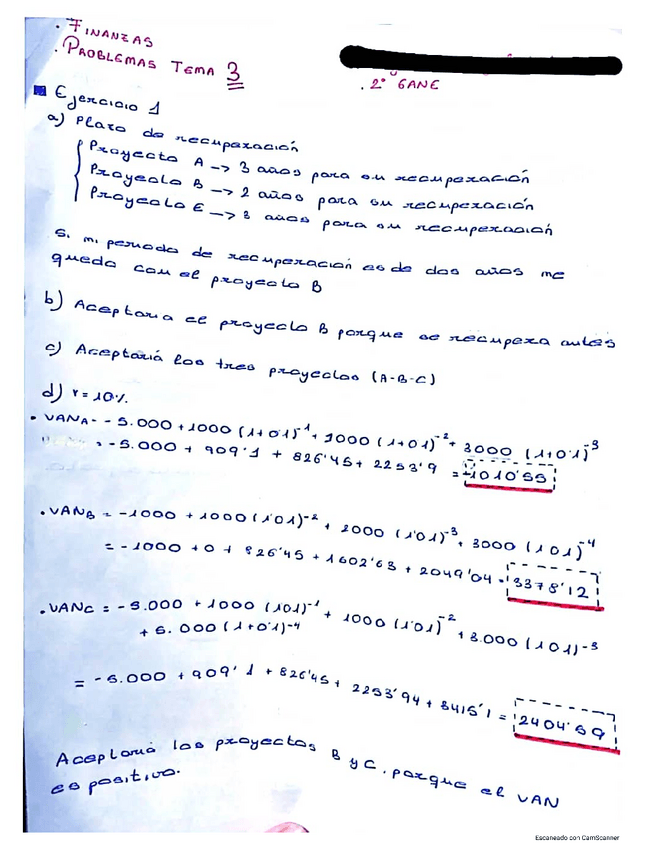 . FINANZAS
. PROBLEMAS TEMA 3
. 2º GANE
Ejercicio 1
a) Plazo de recuperación
Proyecto A -> 3 años para su recuperación
Proyecto B -> 2 años para su recuperación
Proyecto C -> 3 años para su recuperación
Si mi periodo de recuperación es de dos años me
quedo con el proyecto B
b) Aceptaria el proyecto B porque se recupera antes
c) Aceptaria los tres proyectos (A-B-C)
d) r = 10%
. VANA = -5.000 + 1000 (1+0'1)^-1 + 1000 (1+0'1)^-2 + 3000 (1+0'1)^-3
= -5.000 + 909'1 + 826'45 + 2253'9 = -1010'55
. VANB = -1000 + 1000 (1'01)^-2 + 2000 (1'01)^-3 + 3000 (1'01)^-4
= -1000 + 0 + 826'45 + 1602'63 + 2049'04 = 3378'12
. VANC = -5.000 + 1000 (1'01)^-1 + 1000 (1'01)^-2 + 3.000 (1'01)^-3
+ 5.000 (1+0'1)^-4
= -5.000 + 909'1 + 826'45 + 2253'94 + 3415'1 = 2404'59
Aceptaria los proyectos B y C. porque el VAN
es positivo.
Escaneado con CamScanner